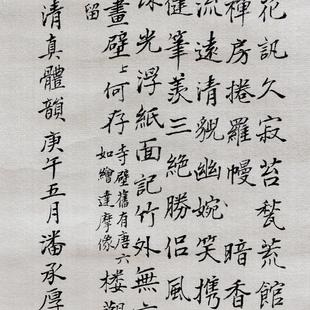 花訊久寂苔甃荒館
禪房捲羅幔 暗香
流遠清貌幽婉笑携
健筆羡三絶勝侶風
光浮紙面記竹外無
畫壁上何存
寺壁舊有唐六
如繪達摩像
楼觀
留
清真體韻庚午五月潘承厚